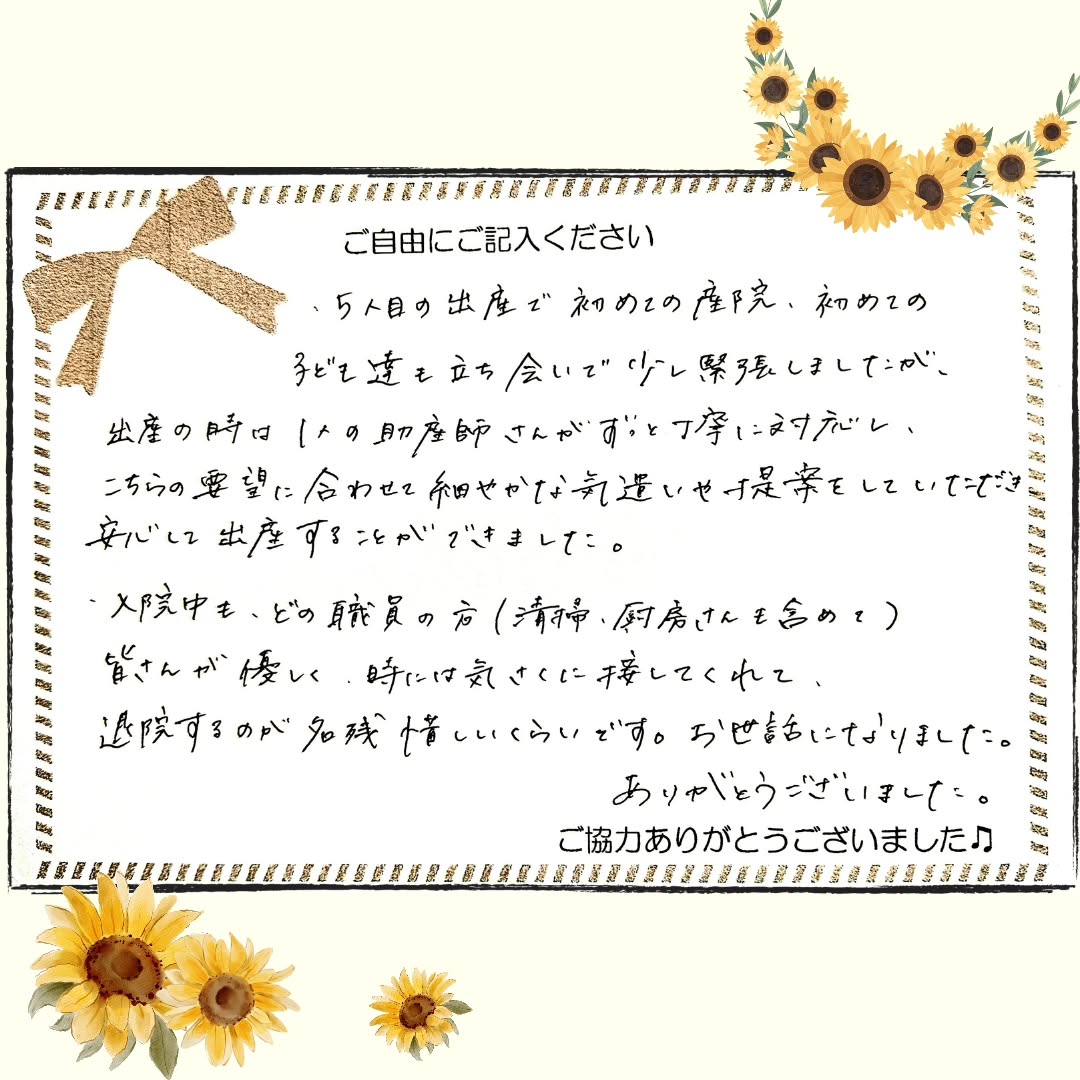 ご自由にご記入ください
・5人目の出産で初めての産院、初めての
子ども達も立ち会いで少し緊張しましたが、
出産の時は1人の助産師さんがずっと丁寧に対応し、
こちらの要望に合わせて細やかな気遣いや提案をしていただき
安心して出産することができました。
・入院中も、どの職員の方(清掃、厨房さんも含めて)
皆さんが優しく、時には気さくに接してくれて、
退院するのが名残惜しいくらいです。お世話になりました。
ありがとうございました。
ご協力ありがとうございました♫